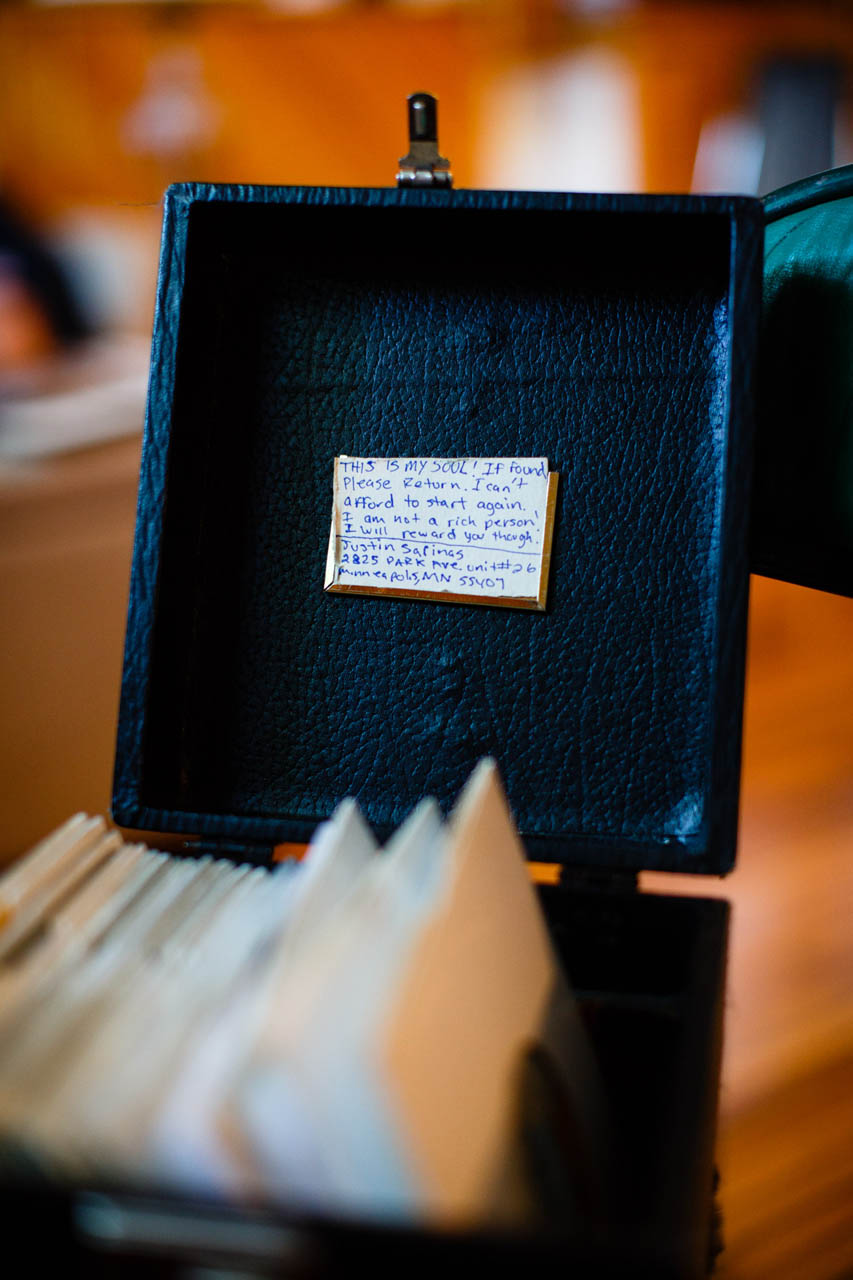 THIS IS MY SOUL! If found
Please Return. I can't
afford to start again.
I am not a rich person!
I will reward you though.
Justin Sapinas
2825 PARK Ave. unit#26
Minneapolis, MN 55407